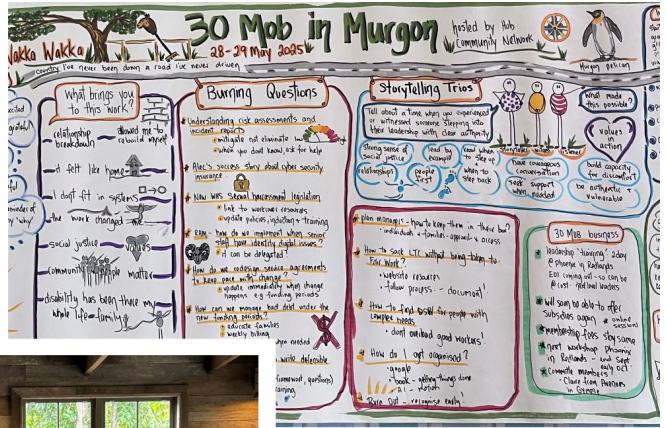 Wakka Wakka
30 Mob in Murgon
28-29 May 2025
hosted by Hub
Community Network
Murgon pelican
Country I've never been down a road i've never driven
What brings you
to this work?
relationship
breakdown
allowed me to
rebuild myself
it felt like home
I don't fit in systems
the work changed me
social justice
values
community
people
matter
disability has been there my
whole life - family
Burning Questions
Understanding risk assessments and
incident reports
mitigate not eliminate
when you don't know, ask for help
Alec's success story about cyber security
insurance
NOW WHS sexual harassment legislation
link to worksafe resources
update policies, induction + training
RAM - how do we implement when senior
staff have identity digital issues?
it can be delegated!
How do we redesign service agreements
to keep pace with change?
update immediately when change
happens eg funding periods
How can we manage bad debt under the
new funding periods?
educate families
weekly billing
when needed
write defensible
framework, questions)
Storytelling Trios
Tell about a time when you experienced
or witnessed someone stepping into
their leadership with clear authority
storyteller
witness
listener
What made
this possible?
values
in
action
strong sense of
social justice
lead by
example
know when
to step up
relationships
people
first
when to
step back
have courageous
conversation
seek support
when needed
build capacity
for discomfort
be authentic &
vulnerable
plan managers - how to keep them in their box?
individuals + families - approach + access
How to sack LTC without being taken to
Fair Work?
website resources
follow process - document!
How to find DSW for people with
complex needs
don't overload good workers!
How do I get organised?
google
book - getting things done
AI - notion
Burn Out - recognise early!
30 Mob business
leadership "training" 2 day
@ phoenix in Raglands
EOI coming out - so can be
@ cost - potential leaders
will soon be able to offer
subsidies again
online
sessions
membership fees stay same
next workshop Phoenix
in Raglands - end Sept
early Oct
Committee members
Claire from Partners
in Gympie